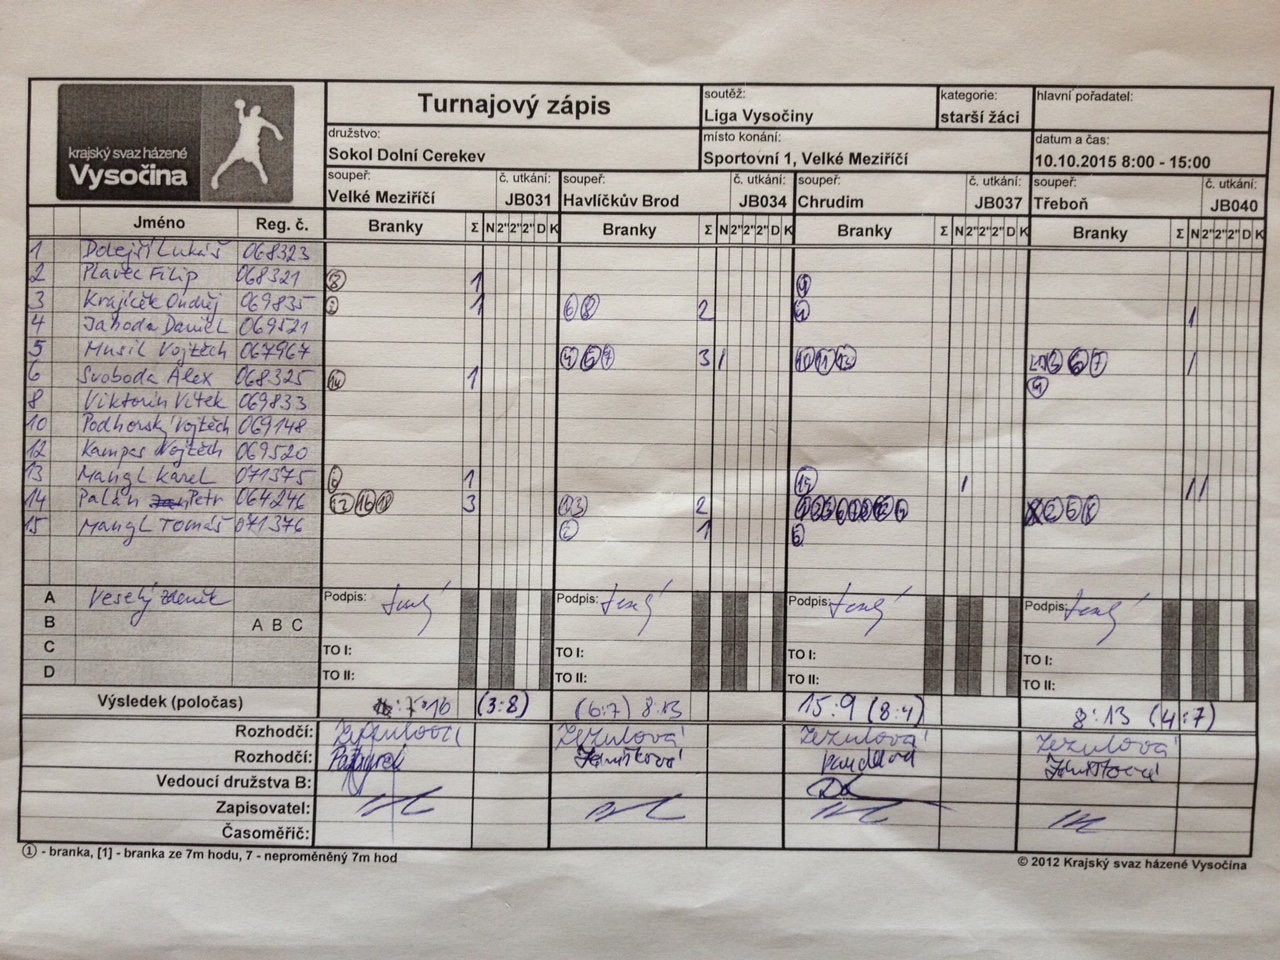 krajský svaz házené
Vysočina
Turnajový zápis
soutěž:
Liga Vysočiny
kategorie:
starší žáci
hlavní pořadatel:
družstvo:
Sokol Dolní Cerekev
místo konání:
Sportovní 1, Velké Meziříčí
datum a čas:
10.10.2015 8:00 - 15:00
soupeř: č. utkání: soupeř: č. utkání: soupeř: č. utkání: soupeř: č. utkání:
Velké Meziříčí JB031 Havlíčkův Brod JB034 Chrudim JB037 Třeboň JB040
Jméno Reg. č. Branky Σ N 2" 2" 2" D K Branky Σ N 2" 2" 2" D K Branky Σ N 2" 2" 2" D K Branky Σ N 2" 2" 2" D K
1 Dolejší Lukáš 068323
2 Plavec Filip 068321 1
3 Krajíček Ondřej 069835 1 6 8 2
4 Jahoda Daniel 069521 1
5 Musil Vojtěch 067967 4 5 7 3 1 10 11 13 1
6 Svoboda Alex 068325 14 1
8 Viktorin Vítek 069833
10 Podhorský Vojtěch 069148
12 Kampas Vojtěch 069520
13 Mangl Karel 071375 1 1 11
14 Palán Petr 064246 3 2
15 Mangl Tomáš 071376 2 1 5
A Veselý Zdeněk Podpis: Podpis: Podpis: Podpis:
B A B C
C TO I: TO I: TO I: TO I:
D TO II: TO II: TO II: TO II:
Výsledek (poločas) 7:16 (3:8) (6:7) 8:13 15:9 (8:4) 8:13 (4:7)
Rozhodčí: Zezulová Zezulová Zezulová Zezulová
Rozhodčí:
Vedoucí družstva B:
Zapisovatel:
Časoměřič:
① - branka, [1] - branka ze 7m hodu, 7 - neproměněný 7m hod
© 2012 Krajský svaz házené Vysočina